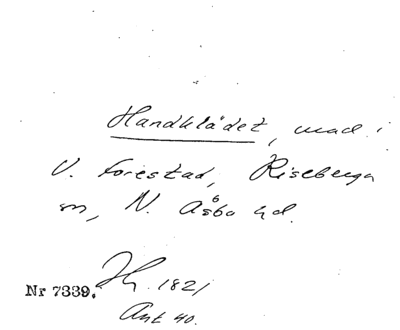 Handklädet, mad i
V. Forestad, Riseberga
sn, N. Åsbo hd.
Nr 7339. 1821
Ant 40.